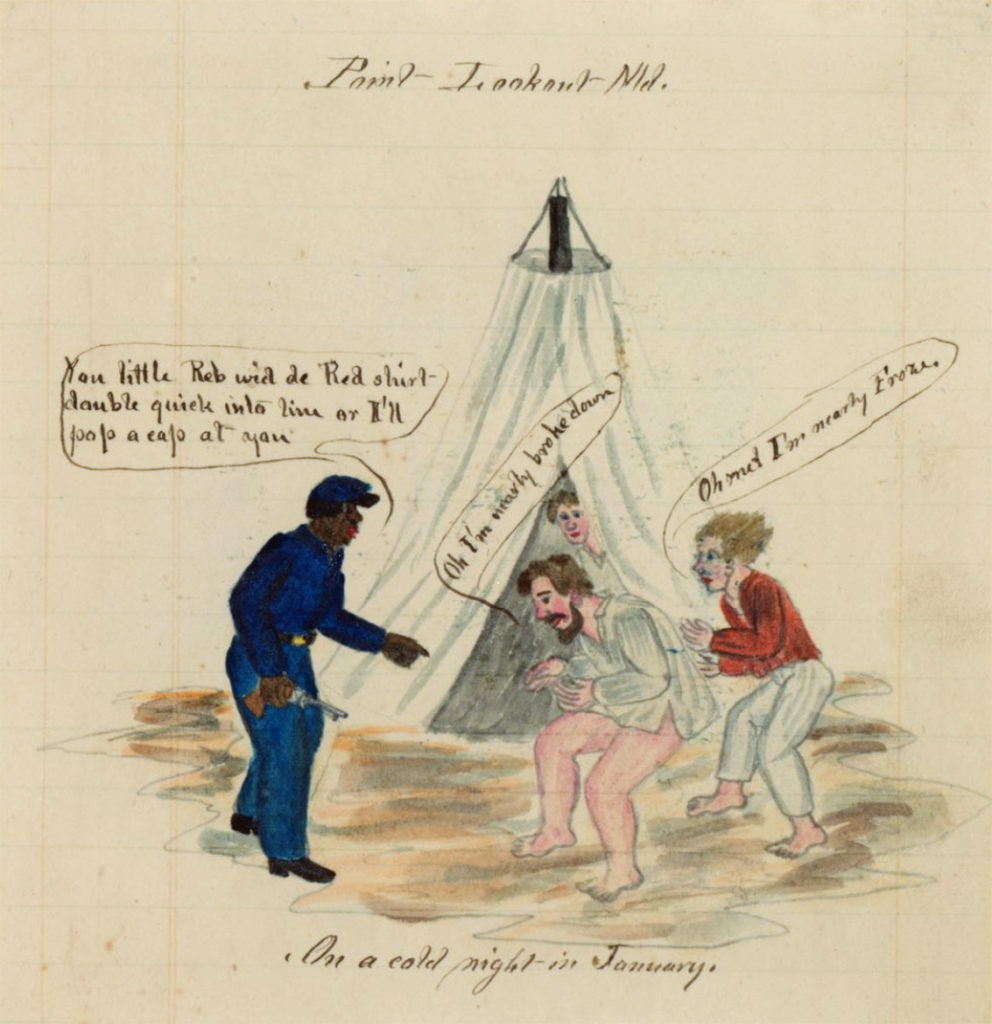 Point Lookout Md.
You little Reb wid de Red shirt
double quick into line or I'll
pop a cap at you
Oh I'm nearly broke down
Oh me! I'm nearly Froze.
On a cold night in January.